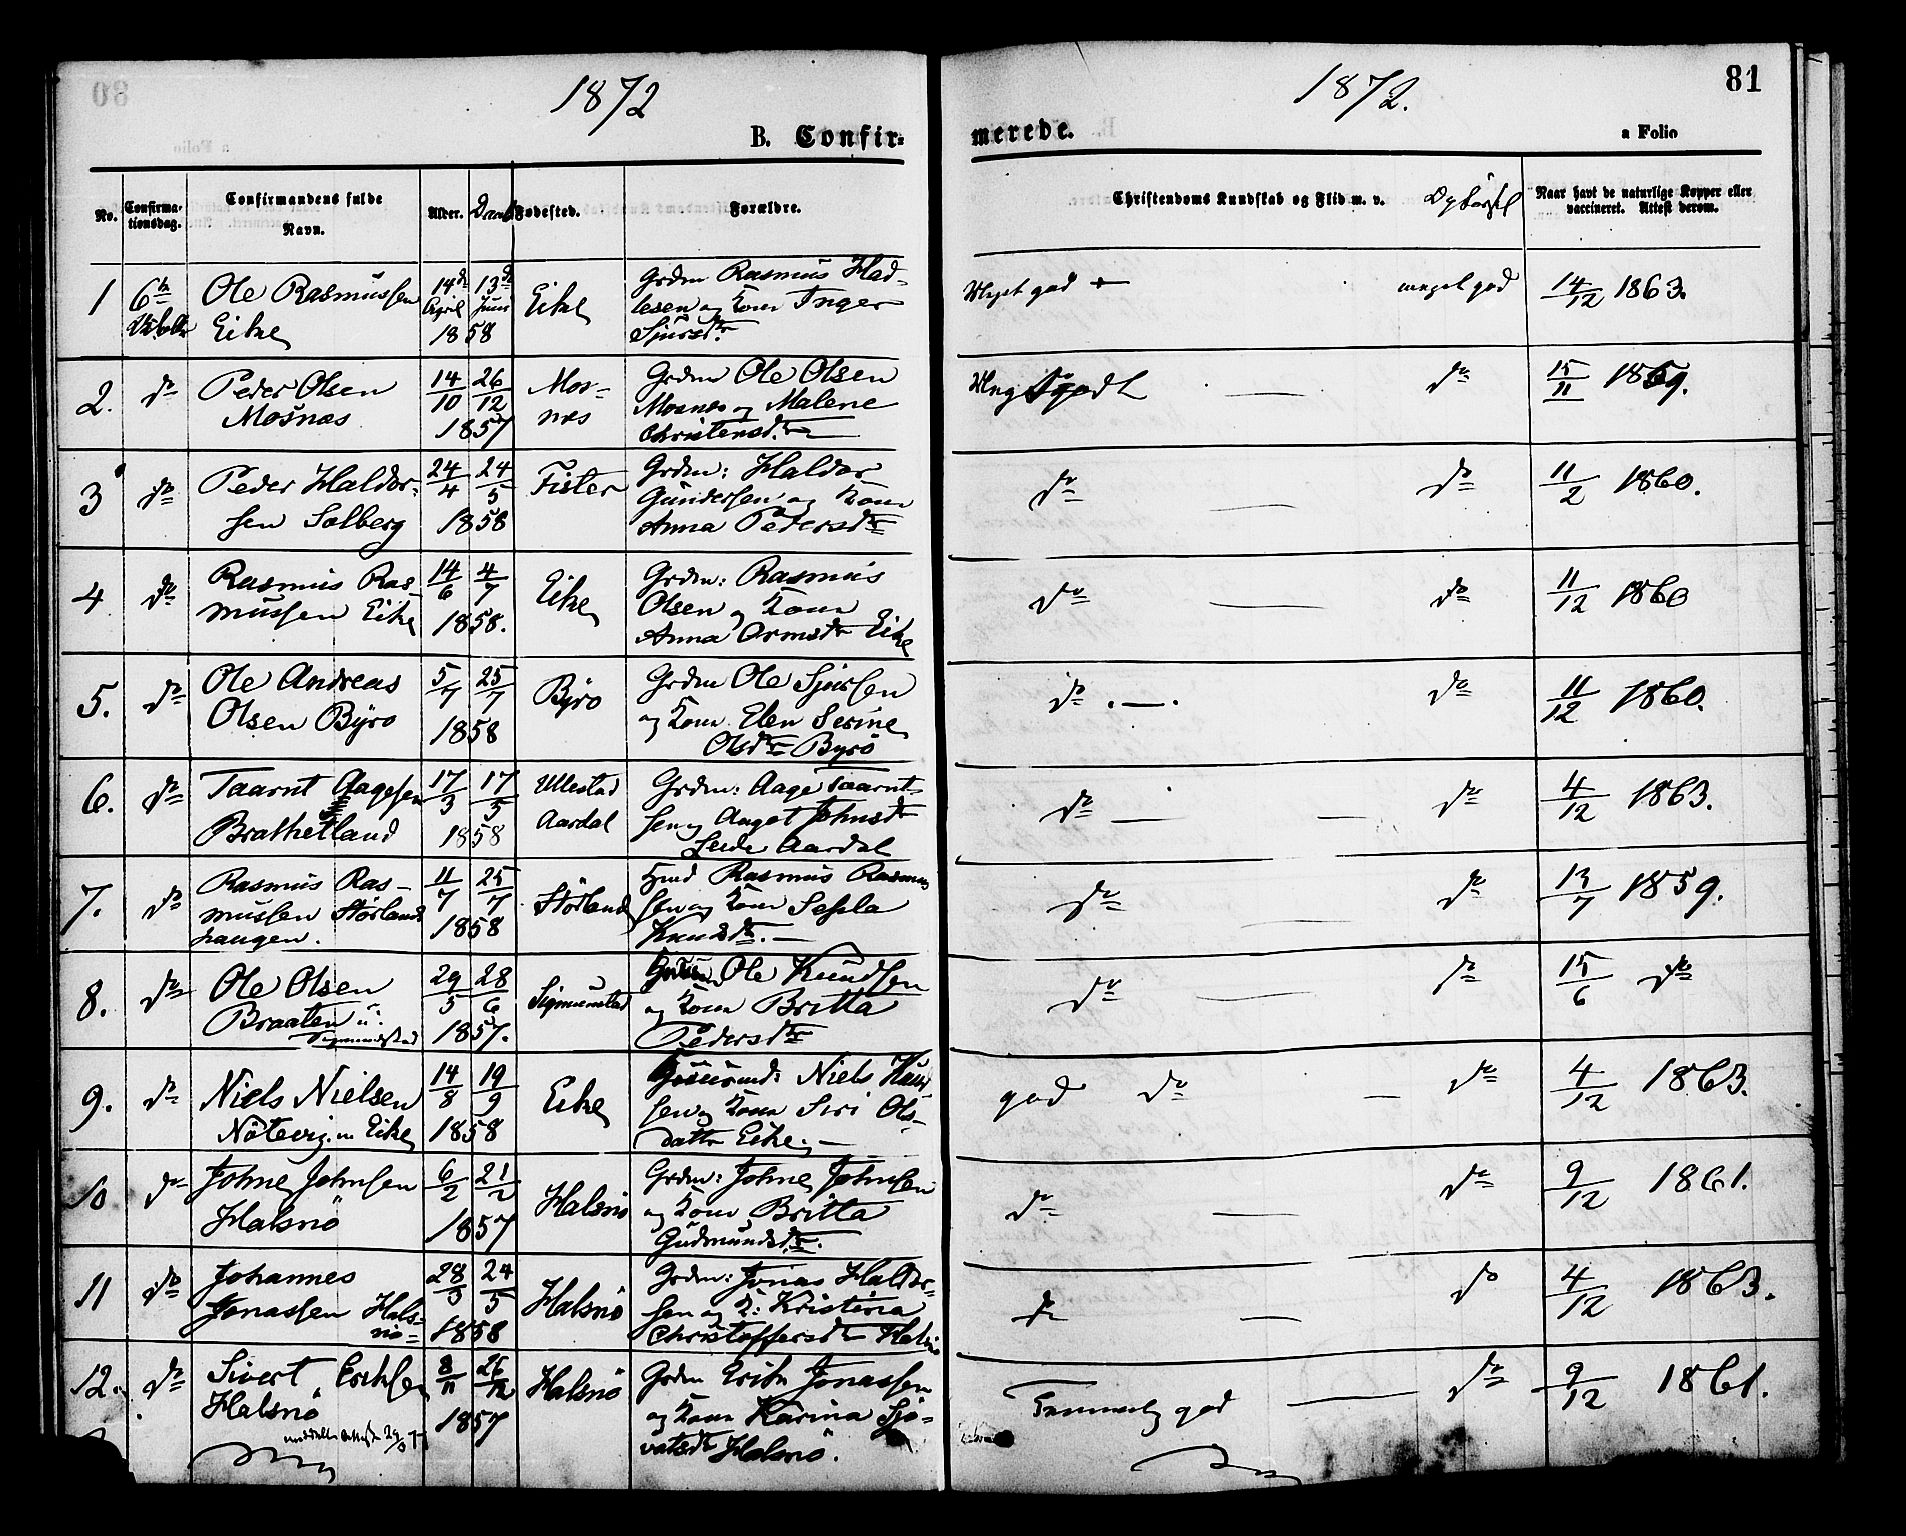 1872
B. Confir=
No.
Confirma-
tionsdag.
Confirmandens fulde
Navn.
Alder.
Daab
Fødested.
Forældre.
1
6te
Ole Rasmussen
Eike
14de 13de
April Juni
1858
Eike
Grdm Rasmus Had-
lesen og Kone Inger
Sjursdtr.
2.
do
Peder Olsen
Mosnæs
14/10 26/12
1857
Mos-
næs
Grdm Ole Olsen
Mosnæs og Malene
Christensdtr.
3
do
Peder Haldor-
sen Solberg
24/4 24/5
1858
Fister
Grdm: Haldor
Gundersen og Kone
Anna Pedersdtr
4
do
Rasmus Ras-
mussen Eike
14/6 4/7
1858.
Eike
Grdm: Rasmus
Olsen og Kone
Anna Ormsdtr Eike
5.
do
Ole Andreas
Olsen Byrø
5/7 25/7
1858
Byrø
Grdm Ole Sjursen
og Kone Elen Serine
Olsdtr Byrø
6.
do
Taarnt Aagesen
Brathetland
17/3 17/5
1858
Ullestad
Aardal
Grdm: Aage Taarnt-
sen og Anget Johnsdtr
Leide Aardal
7.
do
Rasmus Ras-
mussen Størlands
haugen.
11/7 25/7
1858
Størland
Hmd Rasmus Rasmus
sen og Kone
Knudsdtr.
8.
do
Ole Olsen
Braaten u:
Sigmundstad
29/5 28/6
1857.
Sigmunstad
Ole Knudsen
og Kone Britta
Pedersdtr
9.
do
Niels Nielsen
Nøtevig u Eike
14/8 19/9
1858
Eike
Niels Knud
sen og Kone Siri Ols-
datter Eike.
10
do
Johne Johnsen
Halsnø
6/2 21/2
1857
Halsnø
Grdm: Johne Johnsen
og Kone Britta
Gudmundsdtr.
11
do
Johannes
Jonassen Hals-
nø
28/3 24/5
1858
Halsnø
Grdm: Jonas Haldor-
sen og K: Kristina
Christoffersdtr Halsnø
12.
do
Sivert Eriksen
Halsnø
8/11 26/12
1857
Halsnø
Grdm Erik Jonassen
og Kone Karina Sjø-
vatsdtr Halsnø.
1872.
81
merede.
a Folio
Christendoms Kundskab og Flid m. v.
Naar havt de naturlige Kopper eller
vaccineret. Attest derom.
Meget god
meget god
14/12 1863.
do
15/11 1859.
do
do
11/2 1860.
do
do
11/12 1860
do
do
11/12 1860.
do
do
4/12 1863.
do
do
13/7 1859.
do
do
15/6 do
god do
do
4/12 1863.
do
do
9/12 1861.
do
do
4/12 1863.
Temmelig god
do
9/12 1861.